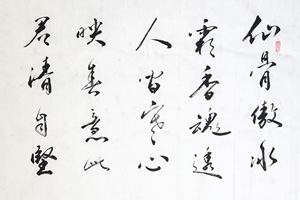 仙骨傲冰
霜香魂透
人间寒心
映春意此
君清自堅